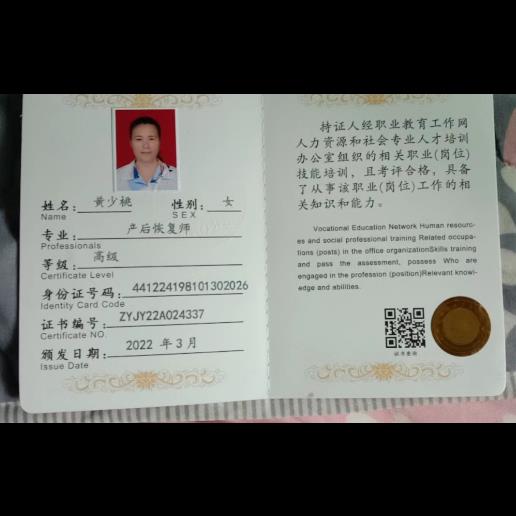 姓名: 黄少桃 性别: 女
Name SEX
专业: 产后恢复师
Professionals
等级: 高级
Certificate Level
身份证号码: 441224198101302026
Identity Card Code
证书编号: ZYJY22A024337
Certificate NO.
颁发日期: 2022 年 3 月
Issue Date
持证人经职业教育工作网
人力资源和社会专业人才培训
办公室组织的相关职业(岗位)
技能培训，且考评合格，具备
了从事该职业(岗位)工作的相
关知识和能力。
Vocational Education Network Human resourc-
es and social professional training Related occupa-
tions (posts) in the office organizationSkills training
and pass the assessment, possess Who are
engaged in the profession (position)Relevant knowl-
edge and abilities.
证书查询